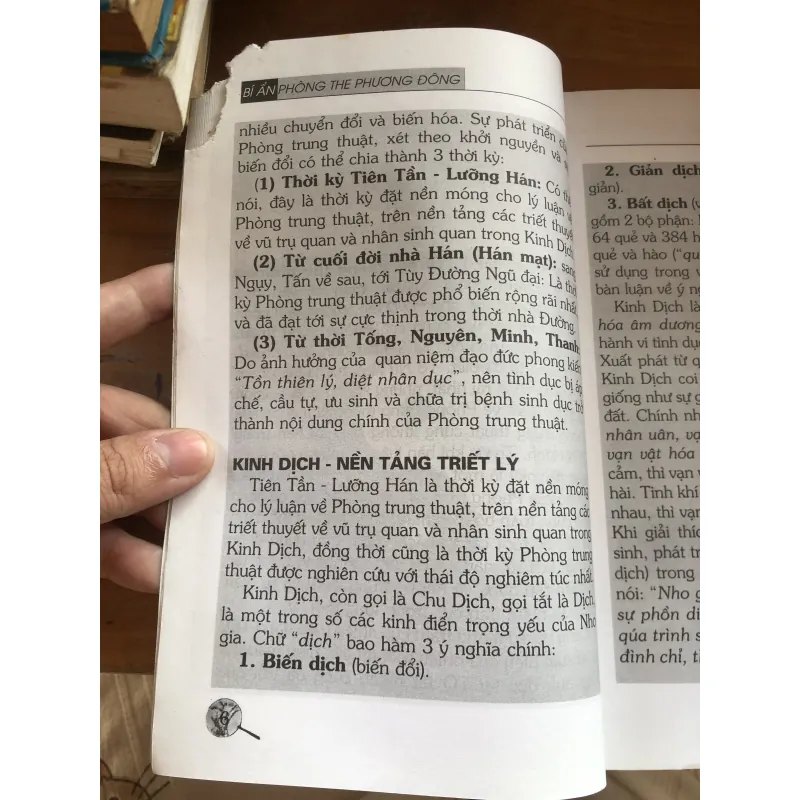 BÍ ẨN PHÒNG THE PHƯƠNG ĐÔNG
nhiều chuyển đổi và biến hóa. Sự phát triển
Phòng trung thuật, xét theo khởi nguyên và
biến đổi có thể chia thành 3 thời kỳ:
(1) Thời kỳ Tiên Tần - Lưỡng Hán: Có
nói, đây là thời kỳ đặt nền móng cho lý luận
Phòng trung thuật, trên nền tảng các triết thuyết
về vũ trụ quan và nhân sinh quan trong Kinh Dịch
(2) Từ cuối đời nhà Hán (Hán mạt): sang
Ngụy, Tấn về sau, tới Tùy Đường Ngũ đại: Là thời
kỳ Phòng trung thuật được phổ biến rộng rãi nhất
và đã đạt tới sự cực thịnh trong thời nhà Đường.
(3) Từ thời Tống, Nguyên, Minh, Thanh:
Do ảnh hưởng của quan niệm đạo đức phong kiến
“Tồn thiên lý, diệt nhân dục”, nên tình dục bị áp
chế, cầu tự, ưu sinh và chữa trị bệnh sinh dục trở
thành nội dung chính của Phòng trung thuật.
KINH DỊCH - NỀN TẢNG TRIẾT LÝ
Tiên Tần - Lưỡng Hán là thời kỳ đặt nền móng
cho lý luận về Phòng trung thuật, trên nền tảng các
triết thuyết về vũ trụ quan và nhân sinh quan trong
Kinh Dịch, đồng thời cũng là thời kỳ Phòng trung
thuật được nghiên cứu với thái độ nghiêm túc nhất.
Kinh Dịch, còn gọi là Chu Dịch, gọi tắt là Dịch,
là một trong số các kinh điển trọng yếu của Nho
gia. Chữ “dịch” bao hàm 3 ý nghĩa chính:
1. Biến dịch (biến đổi).
6
2. Giản dịch
giản).
3. Bất dịch
gồm 2 bộ phận:
64 quẻ và 384
quẻ và hào
sử dụng trong
bàn luận về ý
Kinh Dịch là
hóa âm dương
hành vi tình dục
Xuất phát từ
Kinh Dịch coi
giống như sự
đất. Chính
nhân uân,
vạn vật hóa
cảm, thì vạn
hài. Tình khí
nhau, thì vạn
Khi giải thích
sinh, phát
dịch) trong
nói: “Nho
sự phồn
qúa trình
đình chỉ,